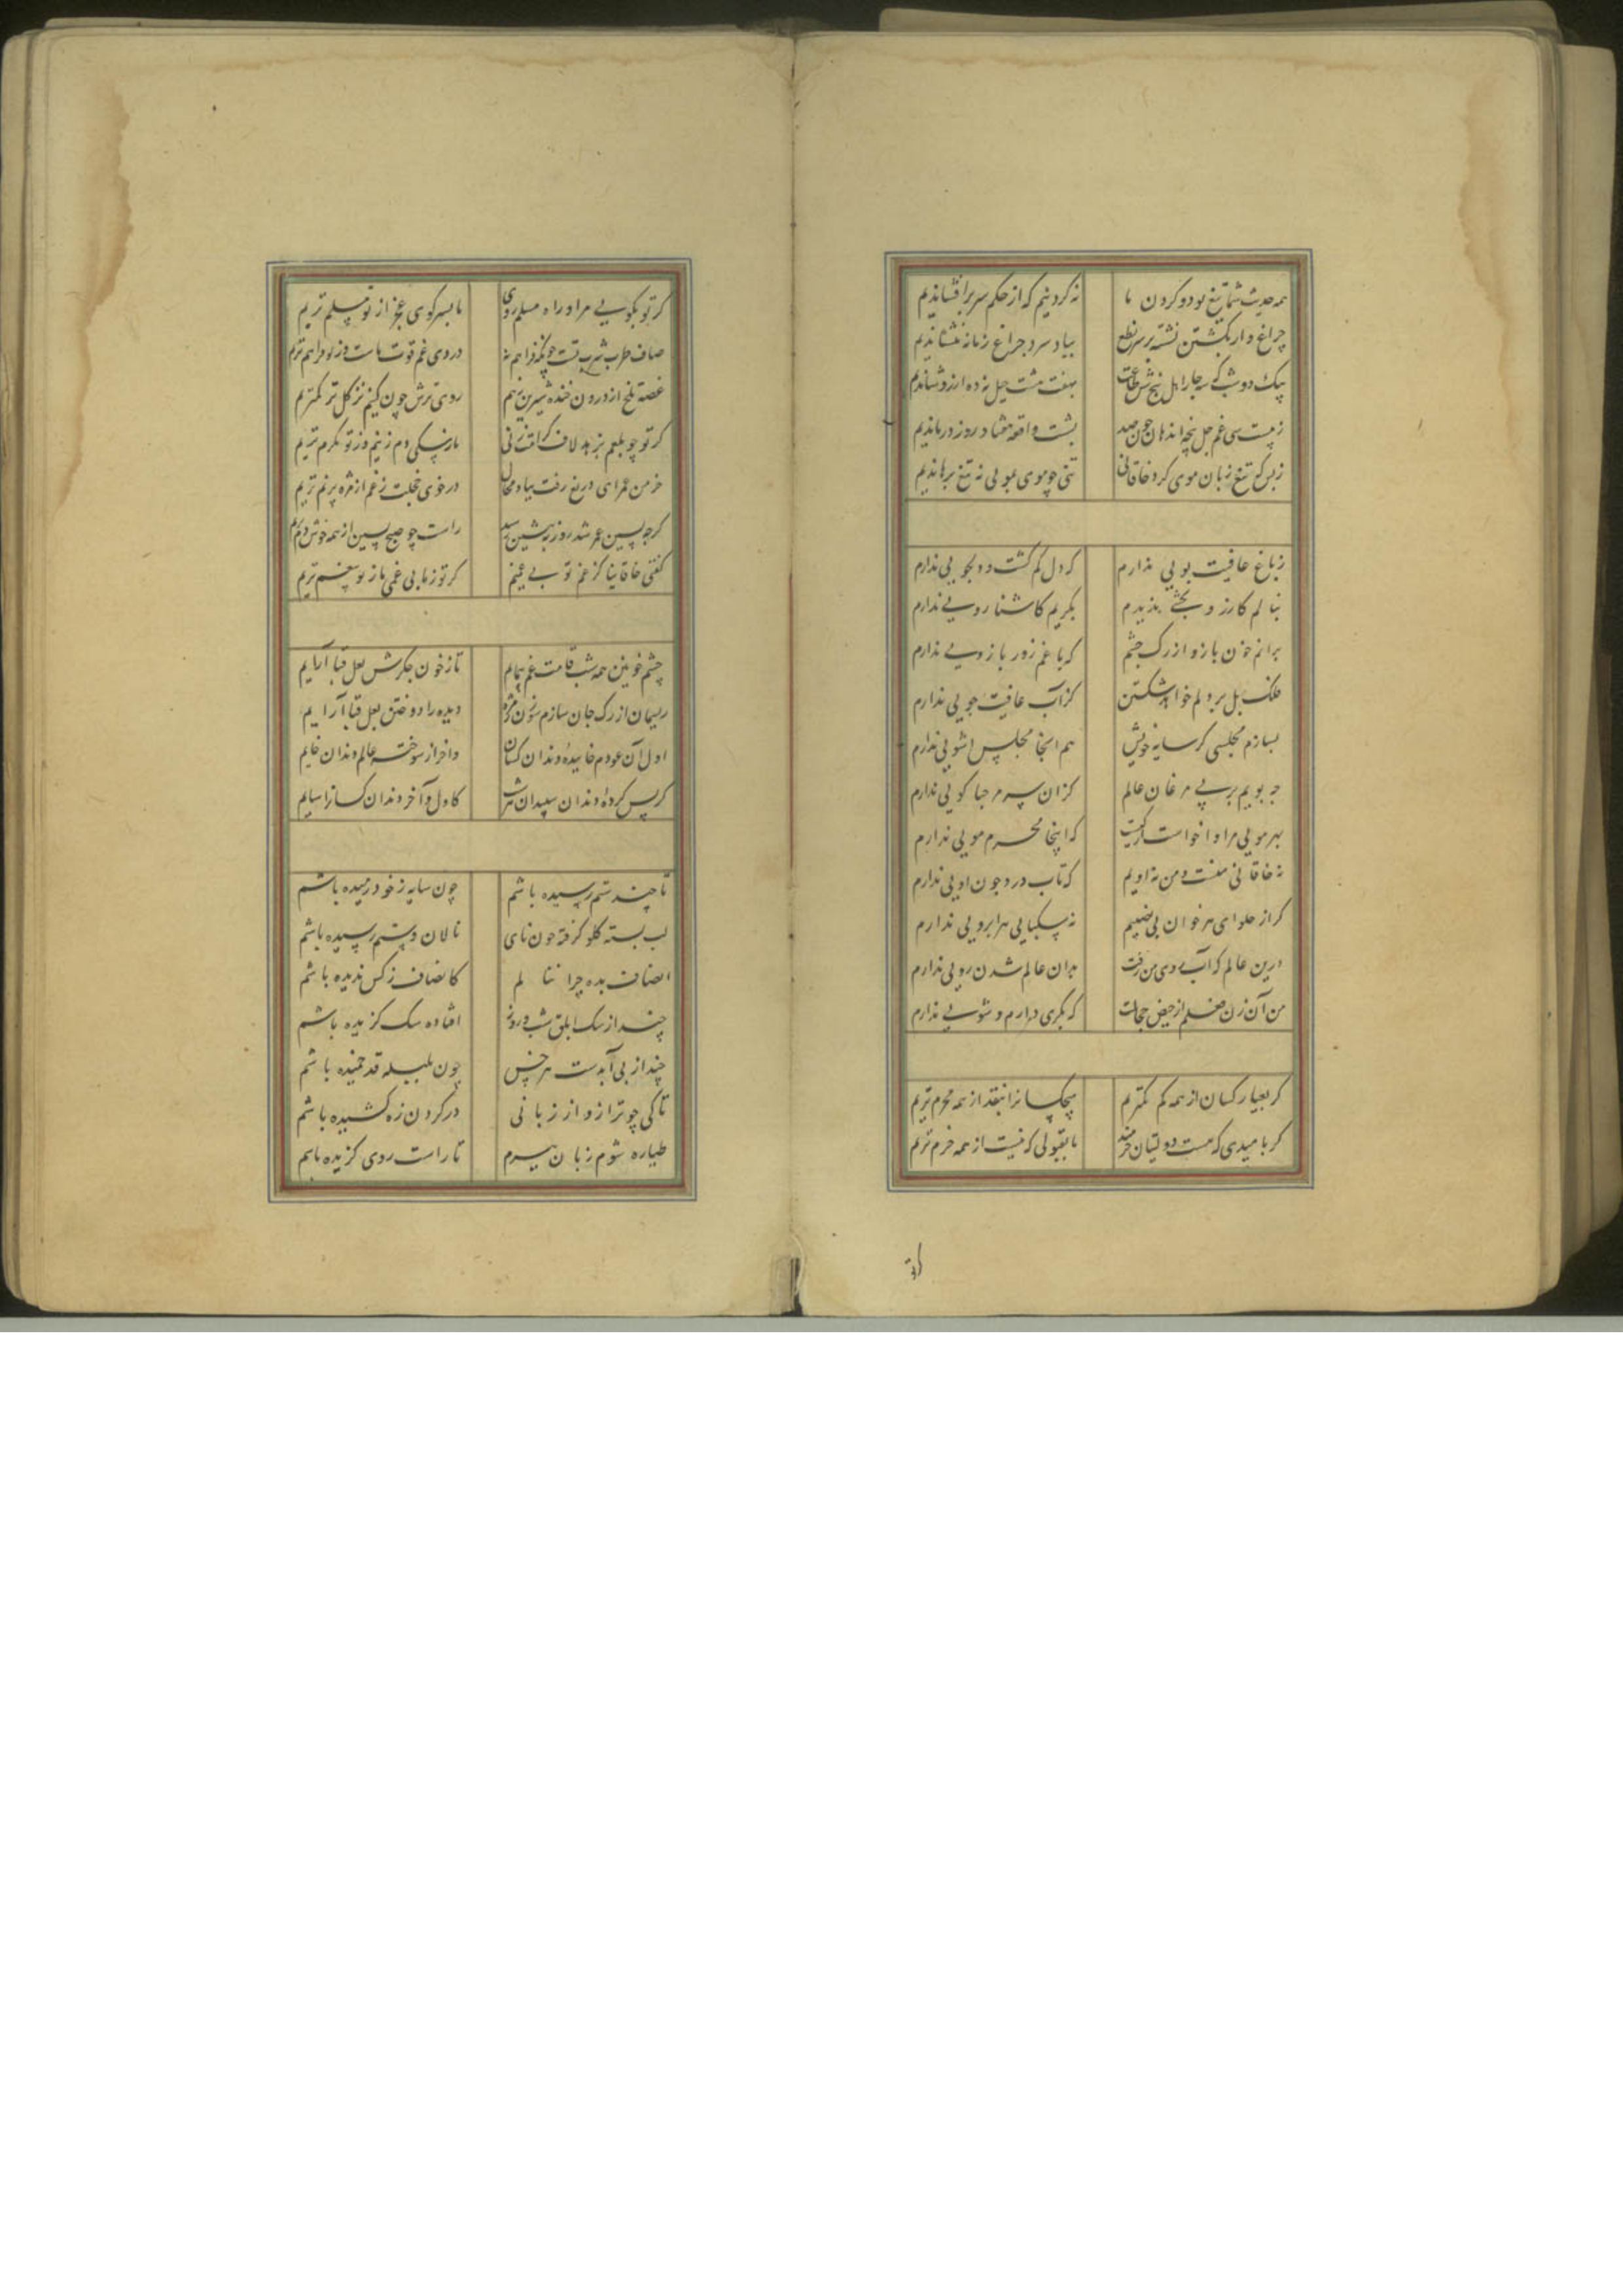 همه حدیث شما تیغ بود و گردن ما نه گردنیم که از حکم سر برافشاندیم
چراغ وار بکشتن نشسته بر سر نطع بباد سرد چراغ زمانه بنشاندیم
بیک دو شب بسه چار اهل پنج شش ساعت بهفت هشت حیل نه ده آرزو شاندیم
ز بیست سی غم جل پنجه اندهان چون صد بشست واقعه هفتاد روز درماندیم
ز بس که تیغ زبان موی کرد خاقانی تنی چو موی بمویی ز تیغ برهاندیم
ز باغ عافیت بویی ندارم که دل گم گشت و دلجویی ندارم
بنالم کارزو بخشی ندیدم بگریم کاشنا رویی ندارم
برانم خون بازو از رگ چشم که با غم زور بازویی ندارم
فلک پل بر دلم خواهد شکستن کز آب عافیت جویی ندارم
بسازم مجلسی گر سایه خویش هم اینجا مجلس اشویی ندارم
چه پویم بر پی مرغان عالم کز آن سر مرحبا گویی ندارم
بهر مویی مرا واخواست از کیست که اینجا محرم مویی ندارم
نه خاقانی منست و من نه اویم که تاب درد چون اویی ندارم
گر از حلوای هر خوان بی نصیبم نه سکبایی هر ابرویی ندارم
درین عالم که آب روی من رفت بدان عالم شدن رویی ندارم
من آن زن فعلم از حیض خجالت که بکری دارم و شویی ندارم
گر بعیار کسان از همه کم کمتریم هیچکسانرا بنقد از همه محرم تریم
گر بامیدی که هست دولتیان خرمند ما بقبولی که نیست از همه خرم تریم
گر تو
گر تو بکویی مراد راه مسلم روی ما بسر کوی عجز از تو مسلم تریم
صاف طرب شربتت چونکه فراهم نه دردی غم قوت ماست وز تو فراهم تریم
غصه تلخ از درون خنده شیرین زنیم روی ترش چون کنیم نز گل تر کمتریم
گر تو چو بلعم بزهد لاف کرامت زنی ما ز سگی دم زنیم وز تو مکرم تریم
خرمن عمر ای دریغ رفت بباد محال در خوی خجلت ز غم از مژه پر نم تریم
گرچه پسین عمر شد روز به پیشین رسید راست چو صبح پسین از همه خوش دم تریم
گفتی خاقانیا کز غم تو بی غمیم گر تو ز ما بی غمی ما ز تو بیغم تریم
چشم خونین همه شب قامت غم پیمایم تا ز خون جگرش لعل قبا آرایم
ریسمان از رگ جان سازم و سوزن ز مژه دیده را دوختن لعل قبا آرایم
اول آن عودم خاییده دندان کسان واخر از سوخته عالم دندان خایم
گر پس کرده دندان سپیدان شرف کاول و آخر دندان کسانرا سایم
تا چند ستم رسیده باشم چون سایه ز خود رمیده باشم
لب بسته گلو گرفته چون نای نالان و ستم رسیده باشم
انصاف بده چرا ننالم کانصاف ز کس ندیده باشم
چند از سگ ابلق شب و روز افتاده سگ گزیده باشم
چند از پی آبدست هر خس چون بلبله قد خمیده باشم
تا کی چو ترازو از زبانی در گردن زه کشیده باشم
طیاره شوم زبان ببرم تا راست روی گزیده باشم